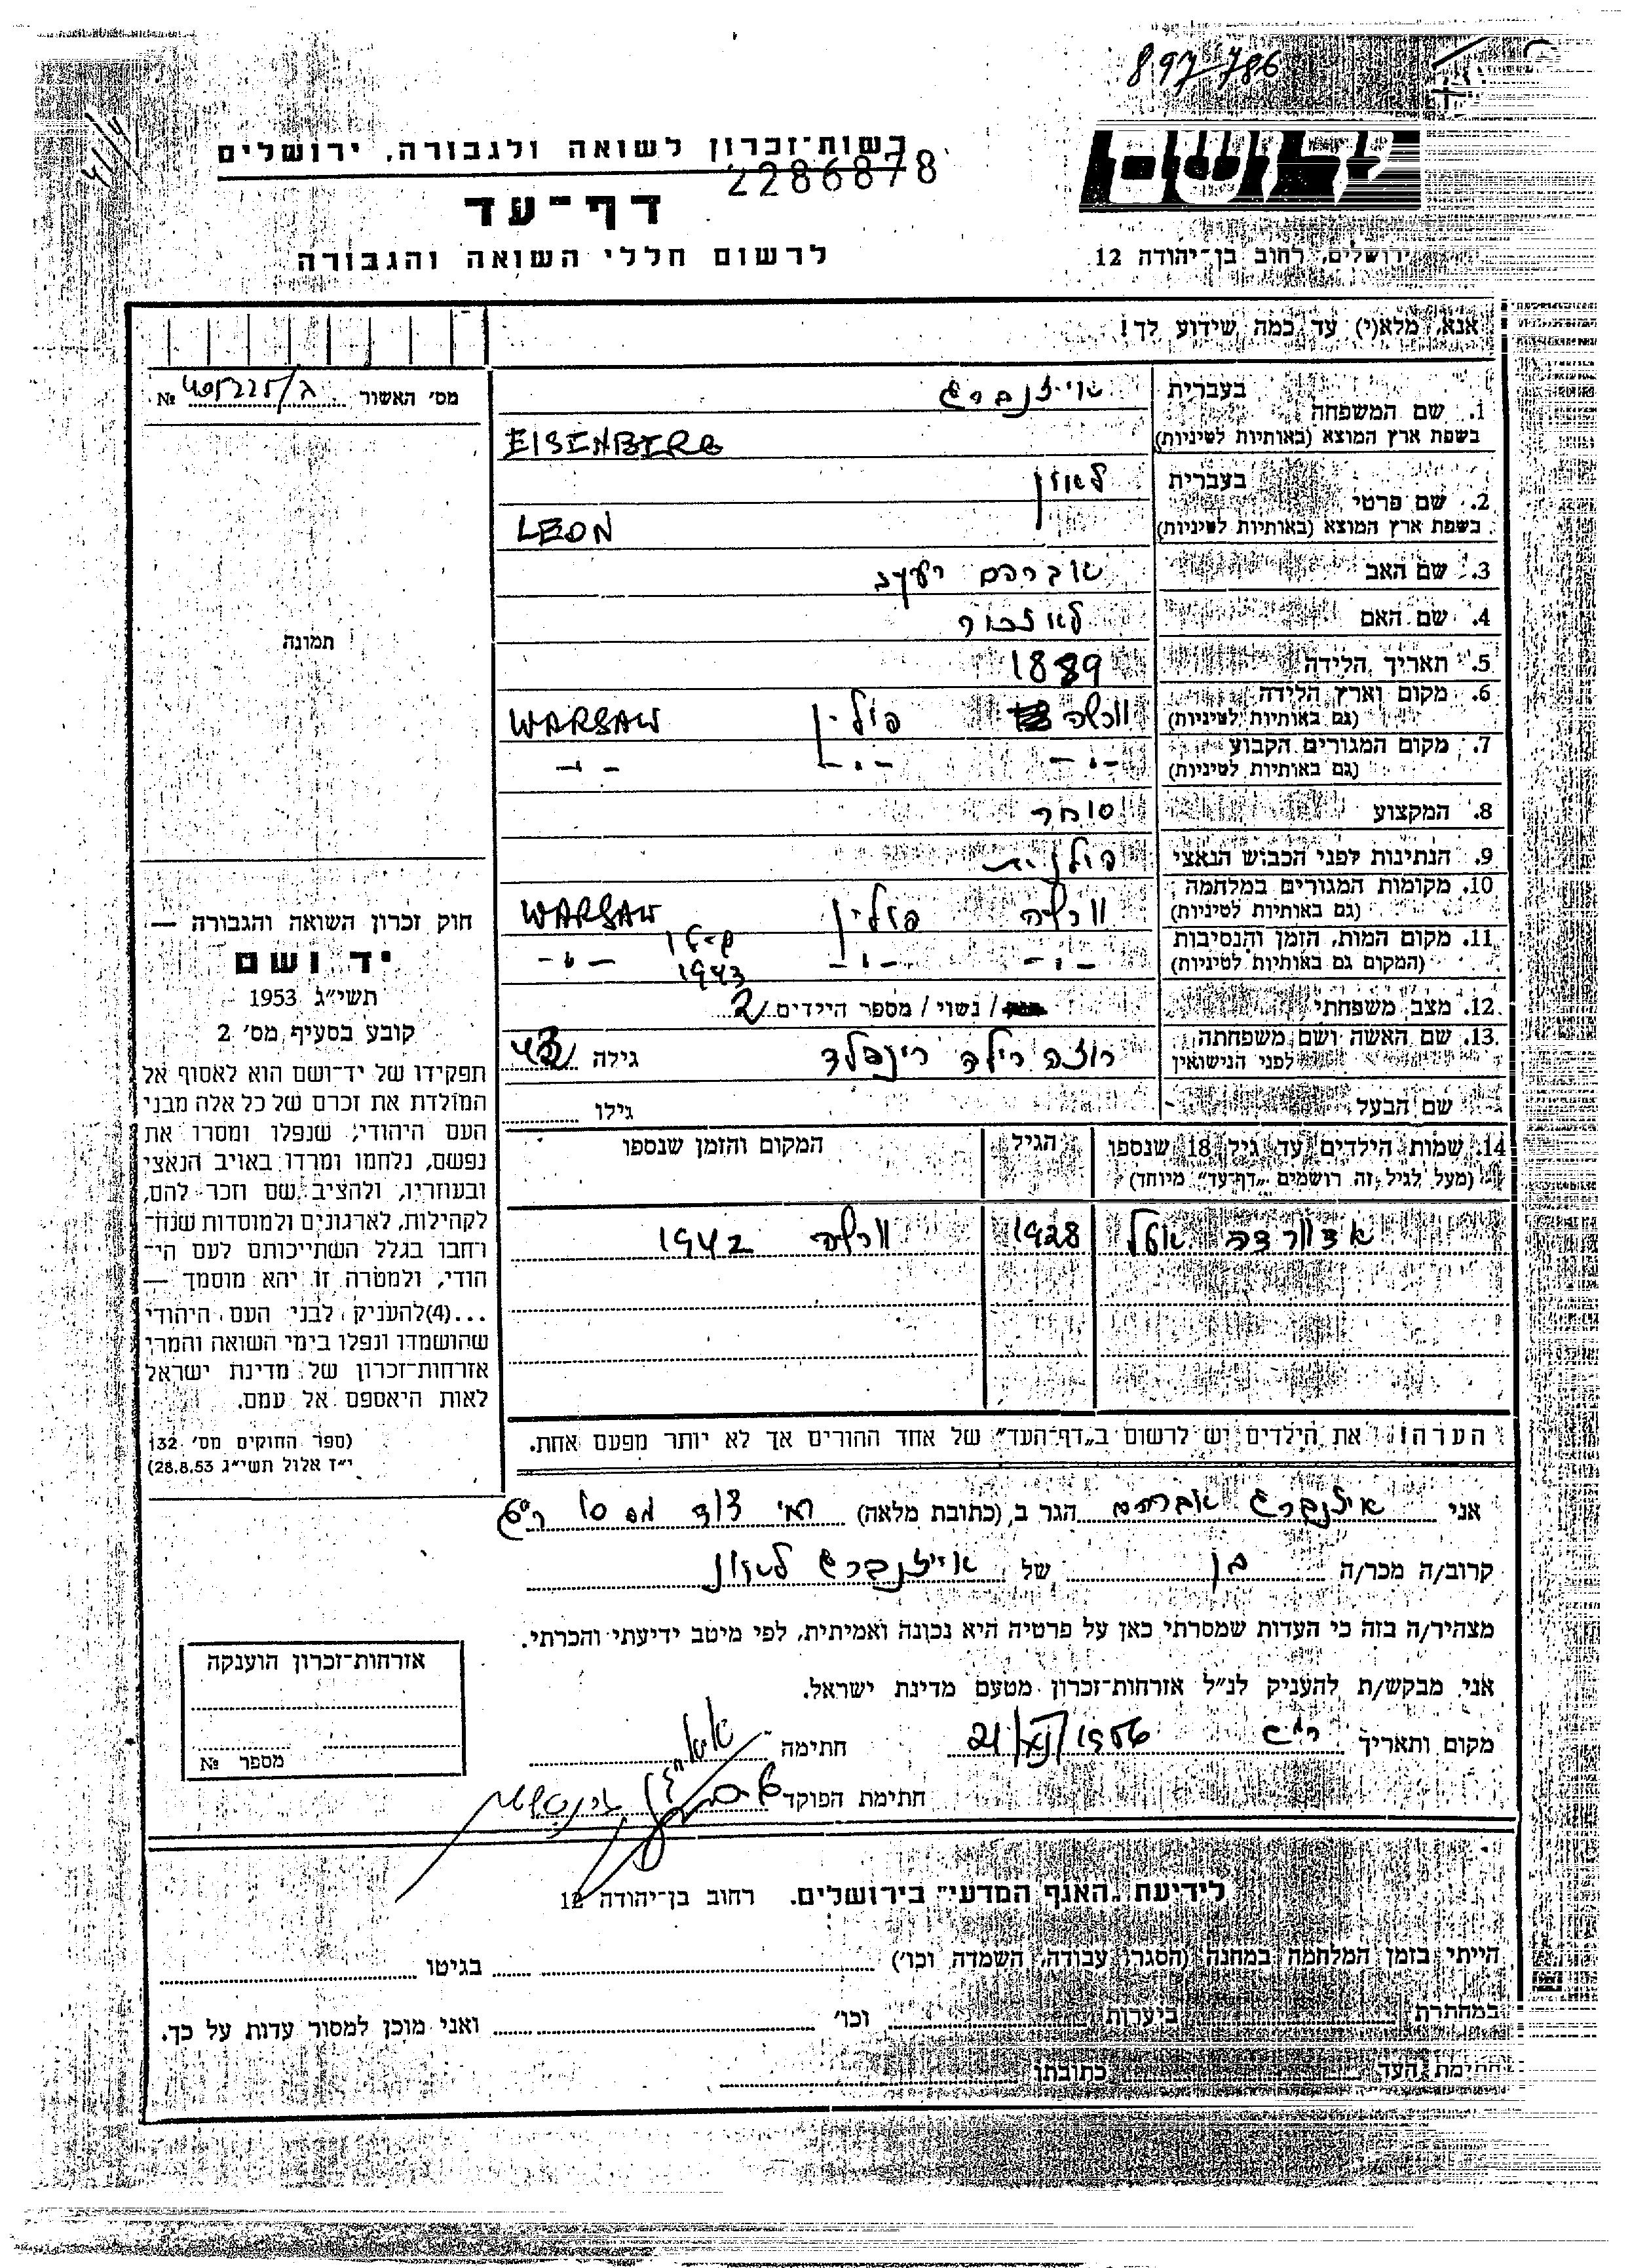 897/786
רשות־זכרון לשואה ולגבורה, ירושלים
2286878
דף־עד
לרשום חללי השואה והגבורה
ירושלים, רחוב בן־יהודה 12
אנא, מלא(י) עד כמה שידוע לך!
מס׳ האשור № 405225/ג
1. שם המשפחה
בעברית אייזנברג
בשפת ארץ המוצא (באותיות לטיניות) EISENBERG
2. שם פרטי
בעברית לאון
בשפת ארץ המוצא (באותיות לטיניות) LEON
3. שם האב אברהם יעקב
4. שם האם
5. תאריך הלידה 1889
6. מקום וארץ הלידה ורשה פולין WARSAW
(גם באותיות לטיניות)
7. מקום המגורים הקבוע -"- -"- -"-
(גם באותיות לטיניות)
8. המקצוע סוחר
9. הנתינות לפני הכבוש הנאצי פולנית
10. מקומות המגורים במלחמה ורשה פולין WARSAW
(גם באותיות לטיניות)
11. מקום המות, הזמן והנסיבות -"- -"- 1943 -"-
(המקום גם באותיות לטיניות)
12. מצב משפחתי / נשוי / מספר הילדים 2
13. שם האשה ושם משפחתה רוזה רינפלד גילה 43
לפני הנישואין
שם הבעל גילו
14. שמות הילדים עד גיל 18 שנספו הגיל המקום והזמן שנספו
(מעל לגיל זה רושמים „דף־עד״ מיוחד)
1928 ורשה 1942
הערה: את הילדים יש לרשום ב„דף־העד״ של אחד ההורים אך לא יותר מפעם אחת.
תמונה
חוק זכרון השואה והגבורה —
יד ושם
תשי״ג 1953
קובע בסעיף מס׳ 2
תפקידו של יד־ושם הוא לאסוף אל
המולדת את זכרם של כל אלה מבני
העם היהודי, שנפלו ומסרו את
נפשם, נלחמו ומרדו באויב הנאצי
ובעוזריו, ולהציב שם וזכר להם,
לקהילות, לארגונים ולמוסדות שנח־
רבו בגלל השתייכותם לעם הי־
הודי, ולמטרה זו יהא מוסמך —
...(4)להעניק לבני העם היהודי
שהושמדו ונפלו בימי השואה והמרי
אזרחות־זכרון של מדינת ישראל
לאות היאספם אל עמם.
(ספר החוקים מס׳ 132
י״ז אלול תשי״ג 28.8.53)
אני איזנברג אברהם הגר ב (כתובת מלאה)
קרוב/ה מכר/ה בן של אייזנברג לאון
מצהיר/ה בזה כי העדות שמסרתי כאן על פרטיה היא נכונה ואמיתית, לפי מיטב ידיעתי והכרתי.
אני מבקש/ת להעניק לנ״ל אזרחות־זכרון מטעם מדינת ישראל.
מקום ותאריך 1956 חתימה
חתימת הפוקד
אזרחות־זכרון הוענקה
מספר №
לידיעת „האגף המדעי״ בירושלים. רחוב בן־יהודה 12
הייתי בזמן המלחמה במחנה (הסגר, עבודה, השמדה וכו׳) בגיטו
במחתרת ביערות וכו׳ ואני מוכן למסור עדות על כך.
חתימת העד כתובתו